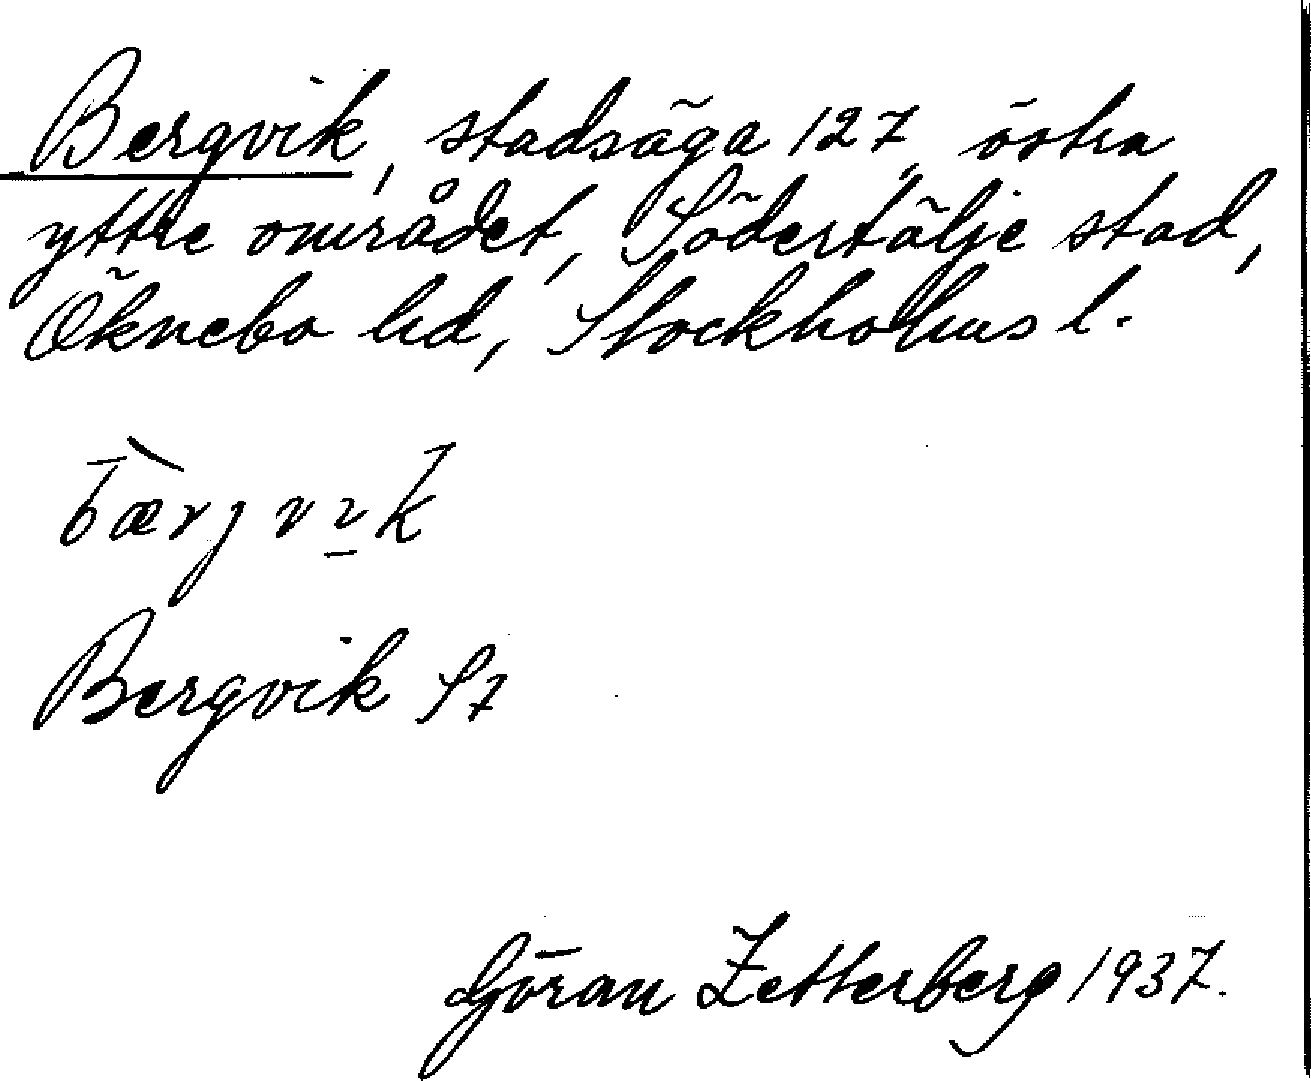 Bergvik, stadsäga 127, östra
yttre området, Södertälje stad,
Öknebo hd, Stockholms l.
bærjvik
Bergvik
Göran Zetterberg 1937.